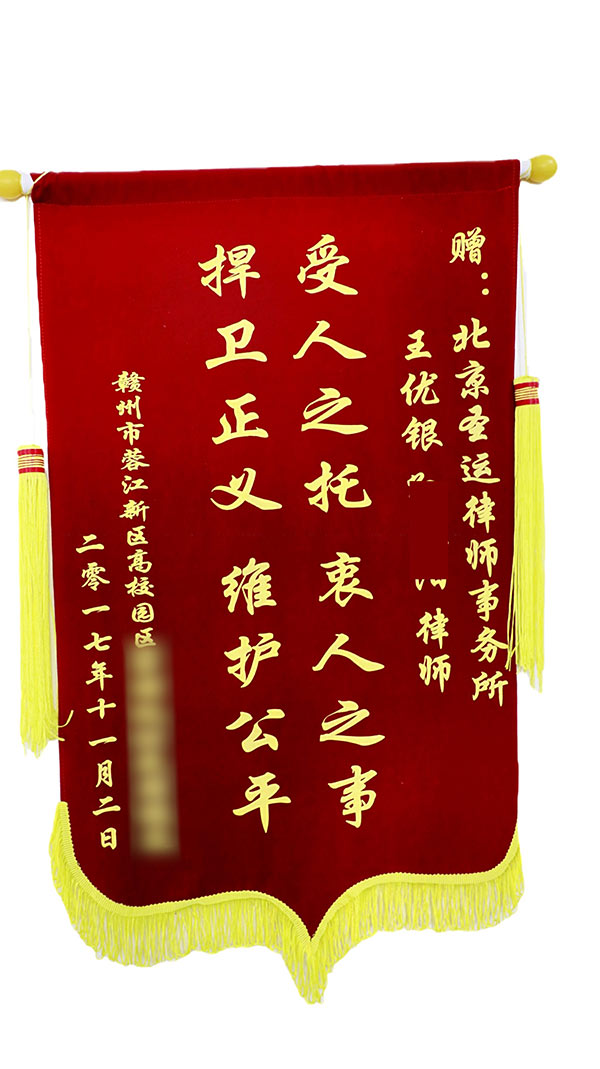 赠：北京圣运律师事务所
王优银 律师
受人之托 衷人之事
捍卫正义 维护公平
赣州市蓉江新区高校园区
二零一七年十一月二日